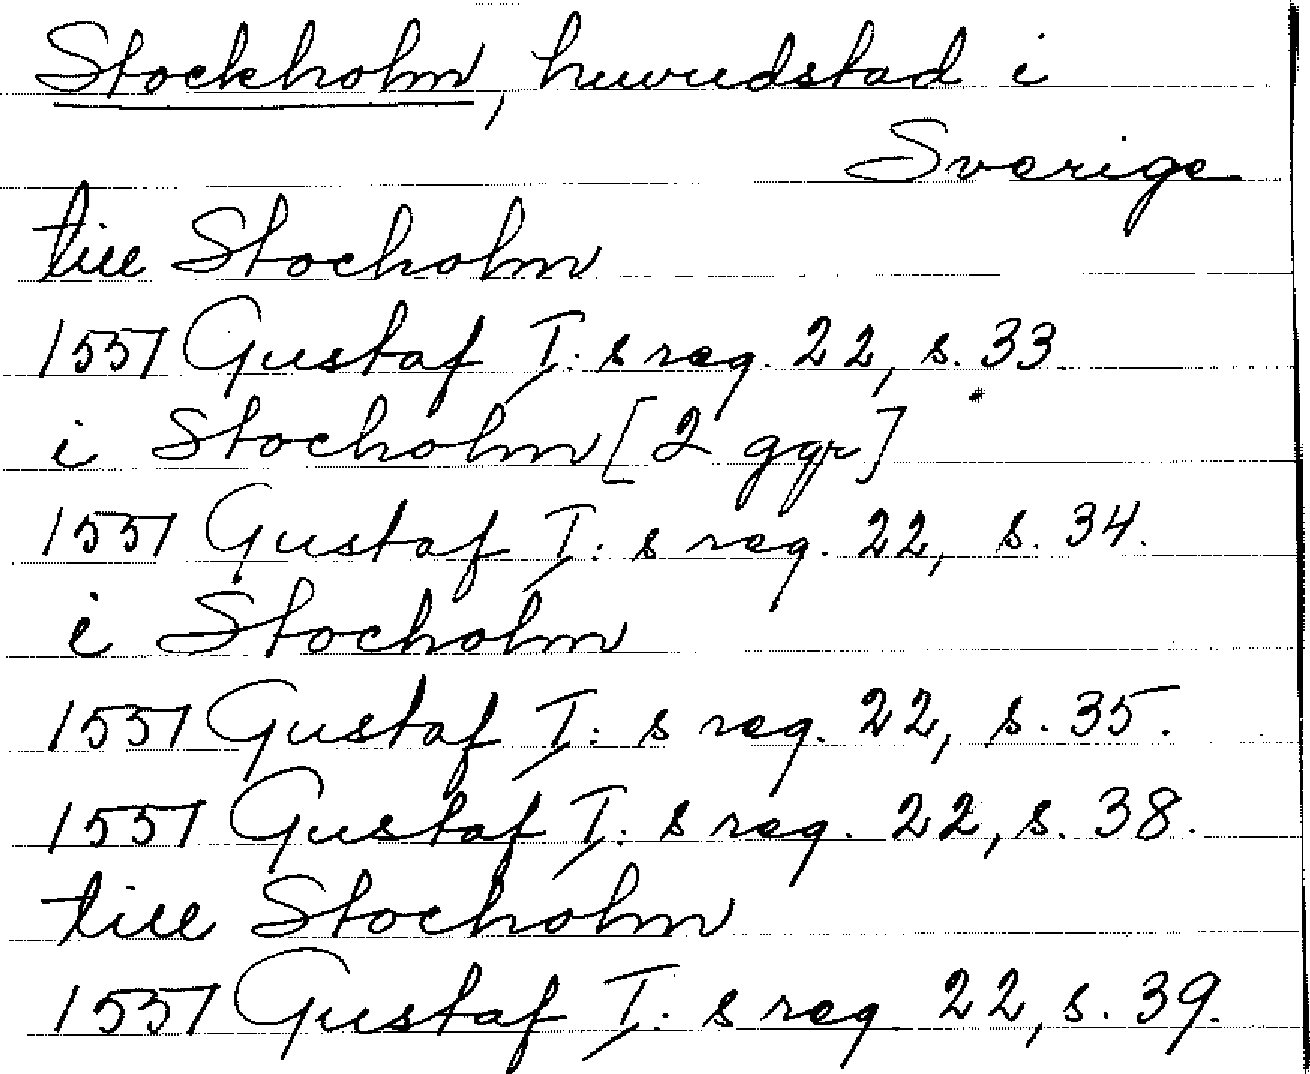 Stockholm, huvudstad i
Sverige
till Stocholm
1551 Gustaf I:s reg. 22, s. 33
i Stocholm [2 ggr]
1551 Gustaf I:s reg. 22, s. 34.
i Stocholm
1551 Gustaf I:s reg. 22, s. 35.
1551 Gustaf I:s reg. 22, s. 38.
till Stocholm
1551 Gustaf I:s reg 22, s. 39.